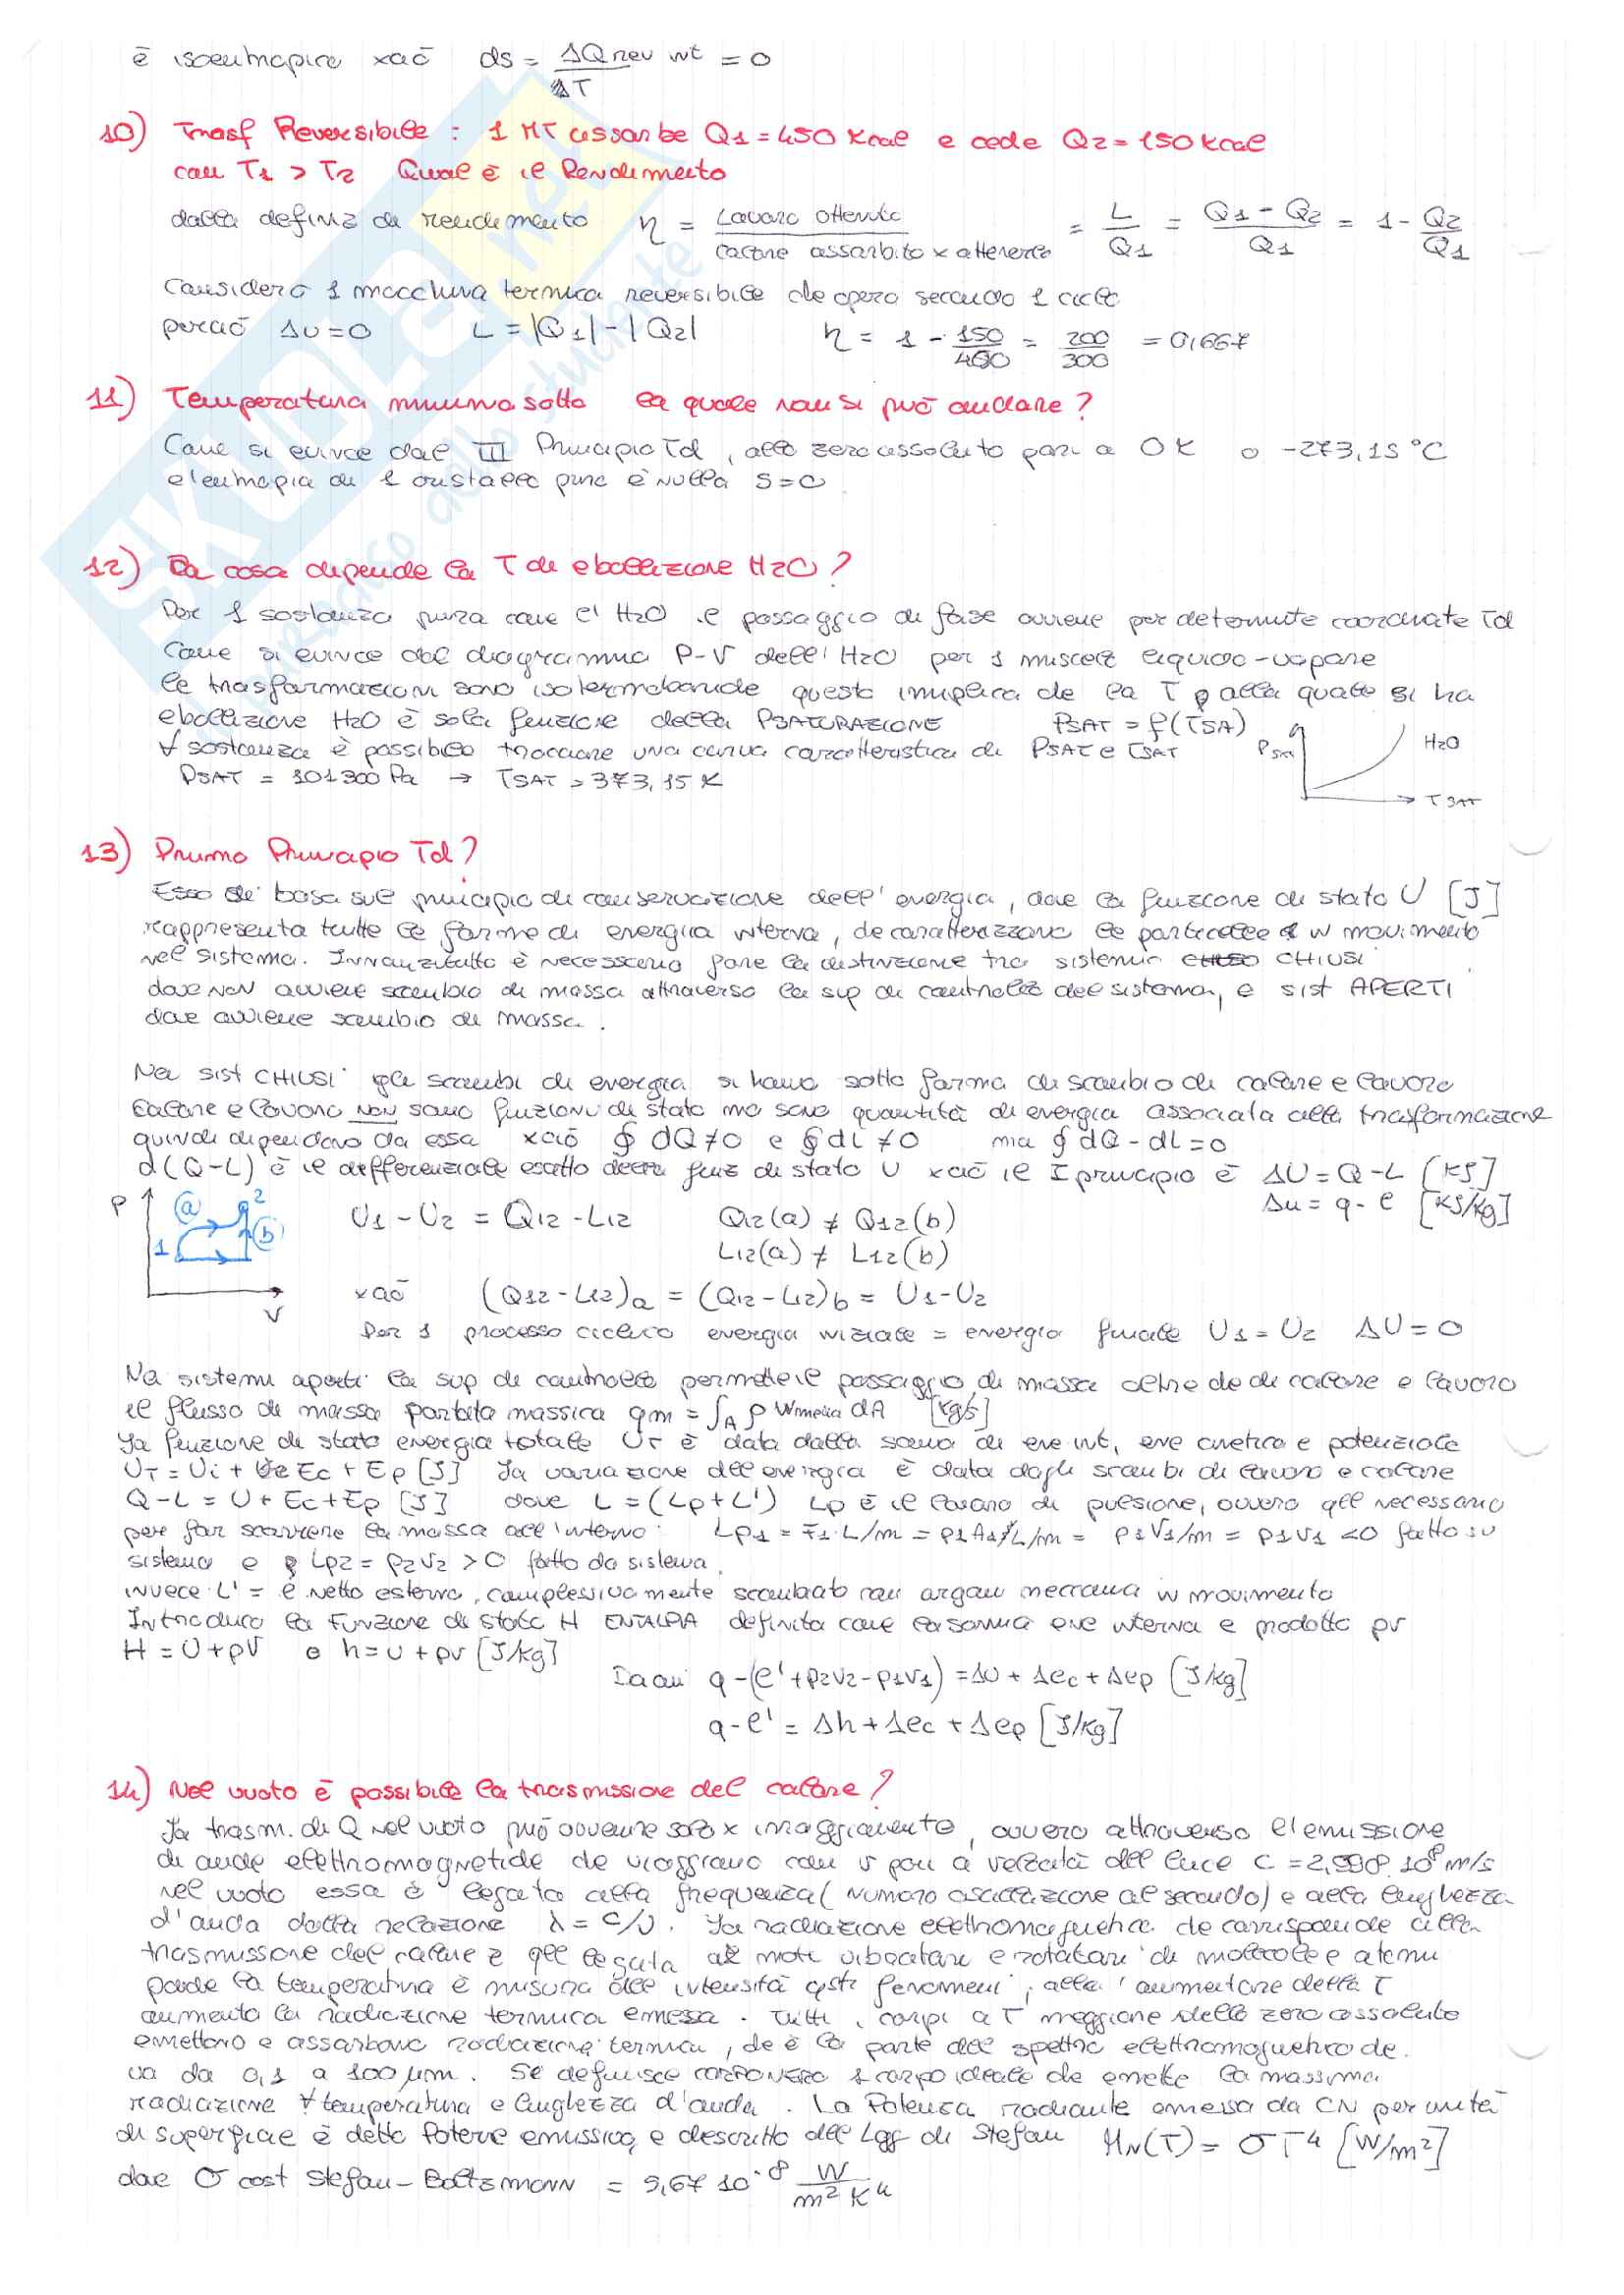 è isoentropica xciò ds = ΔQrev int / ΔT = 0
10) Trasf Reversibile : 1 MT assorbe Q1 = 450 Kcal e cede Q2 = 150 kcal
con T1 > T2 Qual è il Rendimento
dalla definiz di rendimento η = Lavoro ottenuto / calore assorbito x ottenerlo = L / Q1 = Q1 - Q2 / Q1 = 1 - Q2 / Q1
Considero 1 macchina termica reversibile che opera secondo 1 ciclo
perciò ΔU = 0 L = |Q1| - |Q2| η = 1 - 150 / 450 = 200 / 300 = 0,667
11) Temperatura minima sotto la quale non si può andare ?
Come si evince dal III Principio Td, allo zero assoluto pari a 0 K o -273,15 °C
e l'entropia di 1 cristallo puro è nulla S = 0
12) Da cosa dipende la T di ebollizione H2O ?
Per 1 sostanza pura come l' H2O il passaggio di fase avviene per determinate coordinate Td
Come si evince dal diagramma P-V dell' H2O per 1 miscela liquido-vapore
le trasformazioni sono isotermobariche questo implica che la T alla quale si ha
ebollizione H2O è sola funzione della PSATURAZIONE PSAT = f(TSA)
∀ sostanza è possibile tracciare una curva caratteristica di PSAT e TSAT
PSAT = 101300 Pa → TSAT = 373,15 K
PSAT H2O T SAT
13) Primo Principio Td ?
Esso si basa sul principio di conservazione dell' energia, dove la funzione di stato U [J]
rappresenta tutte le forme di energia interna, che caratterizzano le particelle in movimento
nel sistema. Innanzitutto è necessario fare la distinzione tra sistemi CHIUSI
dove NON avviene scambio di massa attraverso la sup di controllo del sistema, e sist APERTI
dove avviene scambio di massa.
Nei sist CHIUSI gli scambi di energia si hanno sotto forma di scambio di calore e lavoro
Calore e lavoro NON sono funzioni di stato ma sono quantità di energia associata alla trasformazione
quindi dipendono da essa xciò ∮ dQ ≠ 0 e ∮ dL ≠ 0 ma ∮ dQ - dL = 0
d(Q-L) è il differenziale esatto della funz di stato U xciò il I principio è ΔU = Q - L [KJ]
Δu = q - l [KJ/kg]
P (a) 2 1 (b) V
U1 - U2 = Q12 - L12 Q12(a) ≠ Q12(b)
L12(a) ≠ L12(b)
xciò (Q12 - L12)a = (Q12 - L12)b = U1 - U2
Per 1 processo ciclico energia iniziale = energia finale U1 = U2 ΔU = 0
Nei sistemi aperti la sup di controllo permette il passaggio di massa oltre che di calore e lavoro
il flusso di massa portata massica qm = ∫A ρ wmedia dA [kg/s]
La funzione di stato energia totale UT è data dalla somma di ene int, ene cinetica e potenziale
UT = Ui + Ec + Ep [J] La variazione dell'energia è data dagli scambi di lavoro e calore
Q - L = U + Ec + Ep [J] dove L = (Lp + L') Lp è il lavoro di pulsione, ovvero qll necessario
per far scorrere la massa all'interno Lp1 = F1·L/m = p1A1L/m = p1V1/m = p1v1 <0 fatto su
sistema e Lp2 = p2v2 > 0 fatto da sistema.
invece L' = è netto esterno, complessivamente scambiato con organi meccanici in movimento
Introduco la Funzione di stato H ENTALPIA definita come la somma ene interna e prodotto pv
H = U + pV e h = u + pv [J/kg]
Da cui q - (l' + p2v2 - p1v1) = ΔU + Δec + Δep [J/kg]
q - l' = Δh + Δec + Δep [J/kg]
14) Nel vuoto è possibile la trasmissione del calore ?
La trasm. di Q nel vuoto può avvenire solo x irraggiamento, ovvero attraverso l'emissione
di onde elettromagnetiche che viaggiano con v pari a velocità dell luce c = 2,998 10^8 m/s
nel vuoto essa è legata alla frequenza (numero oscillazione al secondo) e alla lunghezza
d'onda dalla relazione λ = c/ν. La radiazione elettromagnetica che corrisponde alla
trasmissione del calore è qll legata ai moti vibratori e rotatori di molecole e atomi
poiché la temperatura è misura dell intensità qsti fenomeni, all' aumentare della T
aumenta la radiazione termica emessa. Tutti i corpi a T maggiore dello zero assoluto
emettono e assorbono radiazione termica, che è la parte dell spettro elettromagnetico che
va da 0,1 a 100 μm. Si definisce CORPO NERO 1 corpo ideale che emette la massima
radiazione ∀ temperatura e lunghezza d'onda. La Potenza radiante emessa da CN per unità
di superficie è detto Potere emissivo, e descritto dall Legg di Stefan MN(T) = σT^4 [W/m²]
dove σ cost Stefan-Boltzmann = 5,67 10^-8 W / m² K^4